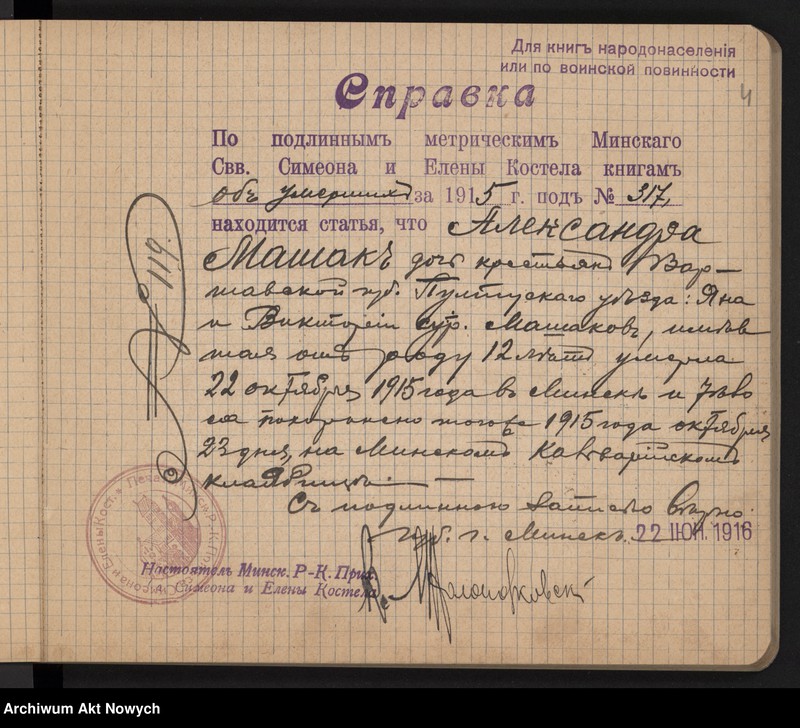 Для книгъ народонаселенія
или по воинской повинности
4
Справка
По подлиннымъ метрическимъ Минскаго
Свв. Симеона и Елены Костела книгамъ
объ умершихъ за 1915 г. подъ № 317,
находится статья, что Александра
Машакъ дочь крестьянъ Вар-
шавской губ. Пултускаго уѣзда: Яна
и Викторіи супр. Машаковъ, имѣв
шая отъ роду 12 лѣтъ умерла
22 октября 1915 года въ Минскѣ и тѣло
ея похоронено того 1915 года октября
23 дня, на Минскомъ Кальварійскомъ
кладбищѣ.
Съ подлинною записью вѣрно.
Губ. г. Минскъ. 22 ІЮН. 1916
Настоятель Минск. Р-К. Прих.
Симеона и Елены Костела
Archiwum Akt Nowych